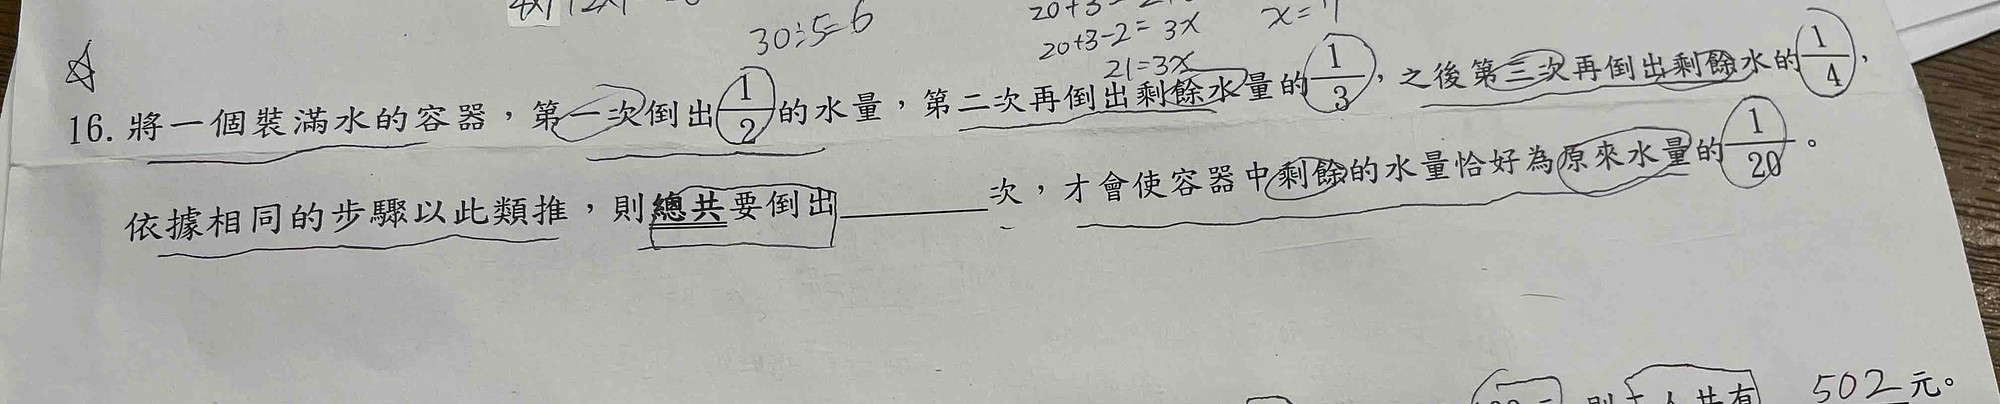 30÷5=6
20+3-2=3x
x=7
21=3x
16. 將一個裝滿水的容器，第一次倒出1/2的水量，第二次再倒出剩餘水量的1/3，之後第三次再倒出剩餘水的1/4，
依據相同的步驟以此類推，則總共要倒出______次，才會使容器中剩餘的水量恰好為原來水量的1/20。
502元。